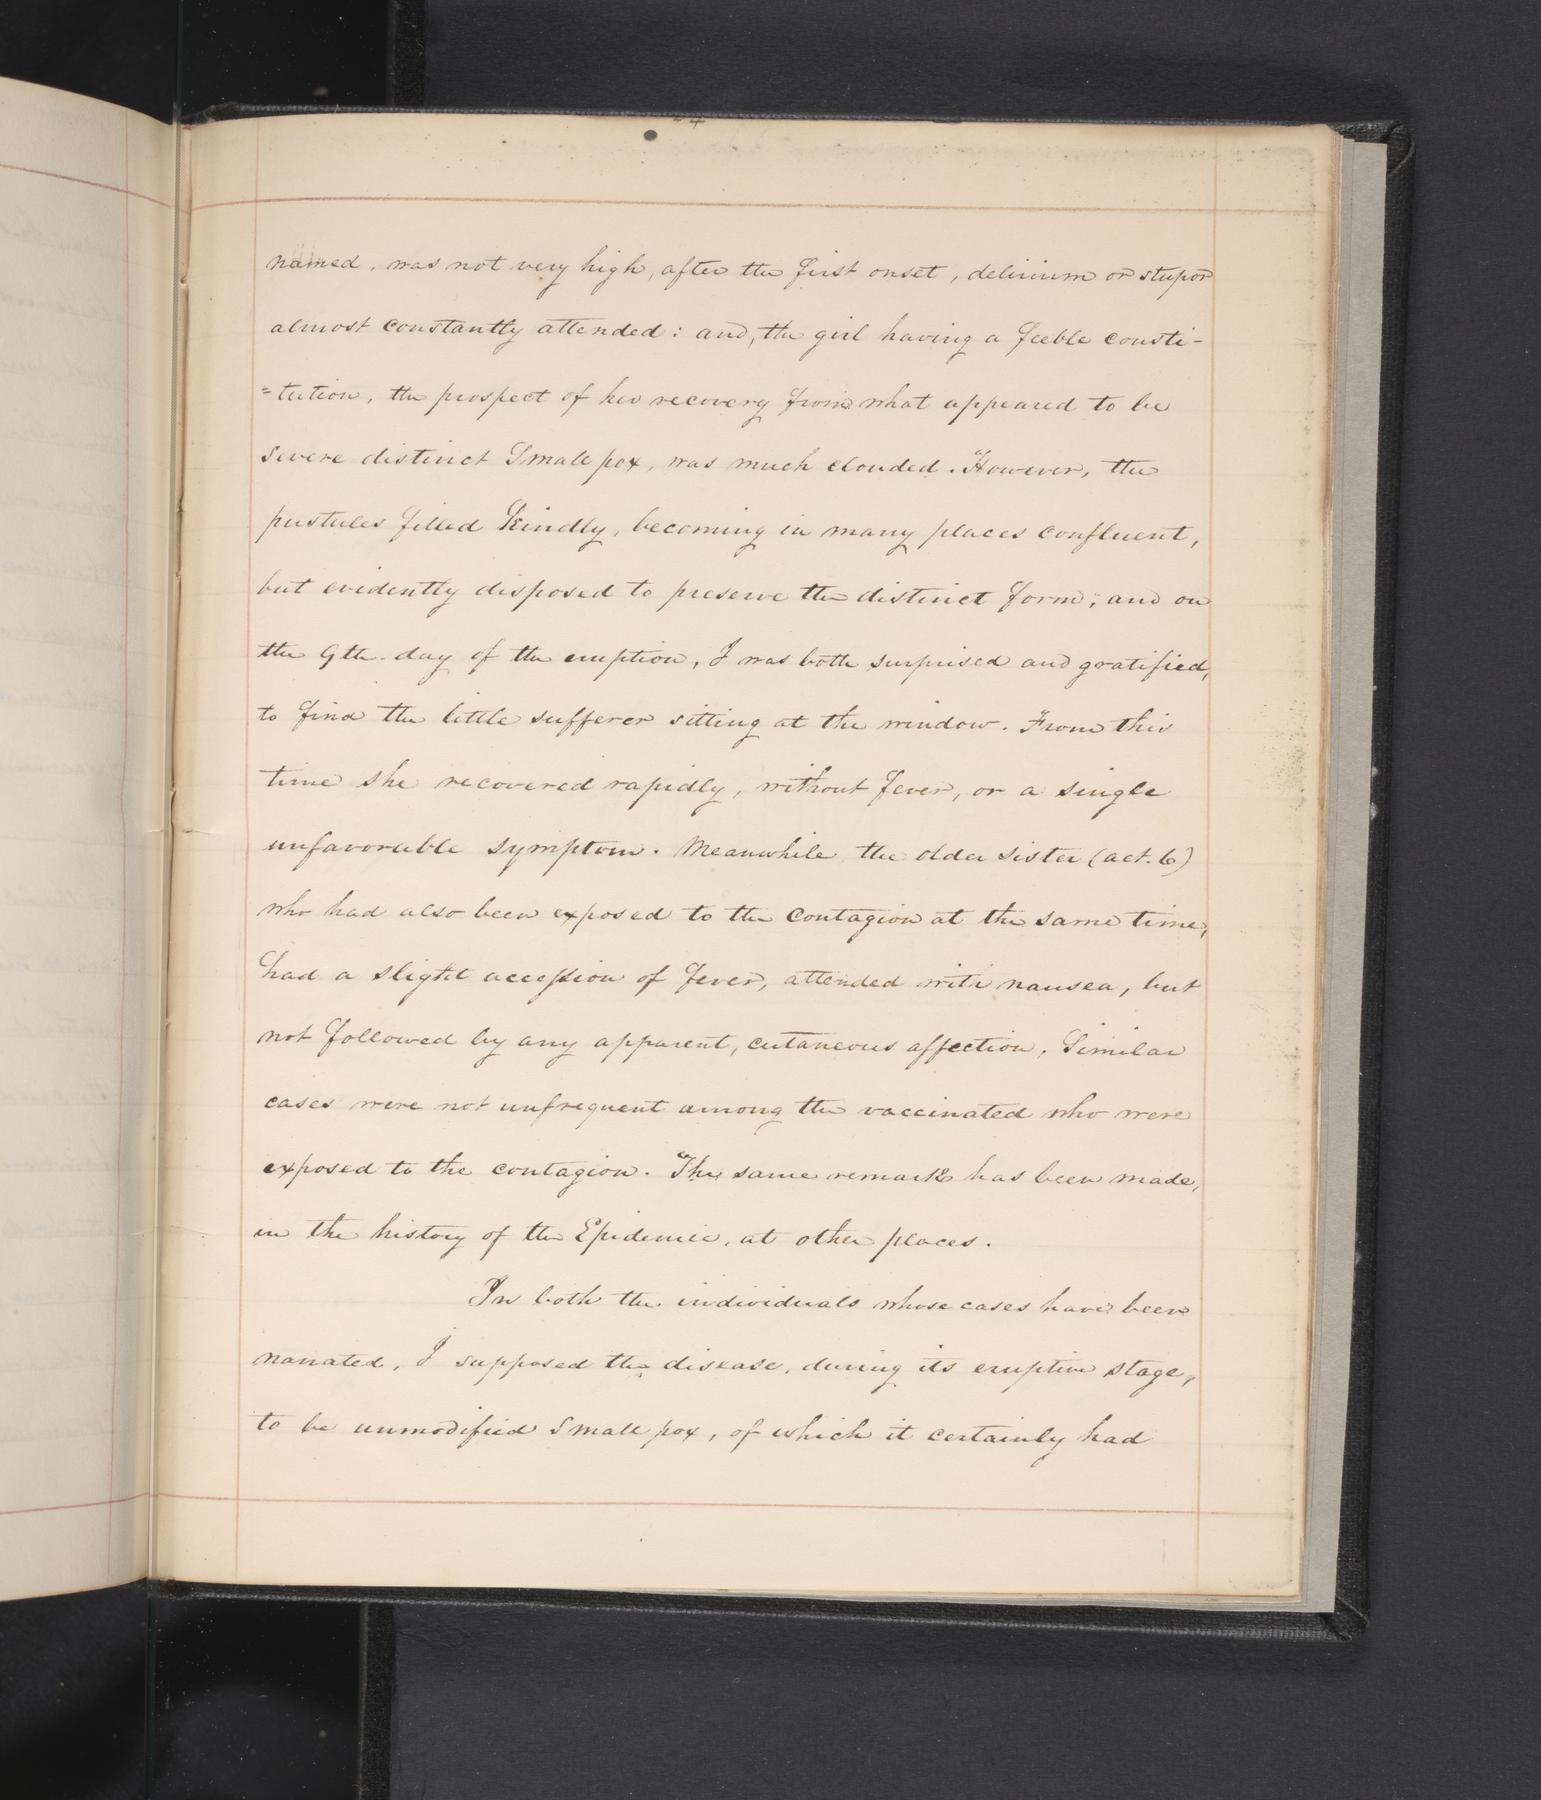 named, was not very high, after the first onset, delirium or stupor
almost constantly attended: and, the girl having a feeble consti-
=tution, the prospect of her recovery from what appeared to be
severe distinct Small pox, was much clouded. However, the
pustules filled kindly, becoming in many places confluent,
but evidently disposed to preserve the distinct form; and on
the 9th. day of the eruption, I was both surprised and gratified,
to find the little sufferer sitting at the window. From this
time she recovered rapidly, without fever, or a single
unfavorable symptom. Meanwhile the older sister (aet. 6)
who had also been exposed to the contagion at the same time,
had a slight accession of fever, attended with nausea, but
not followed by any apparent, cutaneous affection. Similar
cases were not unfrequent among the vaccinated who were
exposed to the contagion. The same remark has been made,
in the history of the Epidemic, at other places.
In both the individuals whose cases have been
narrated, I supposed the disease, during its eruptive stage,
to be unmodified Small pox, of which it certainly had